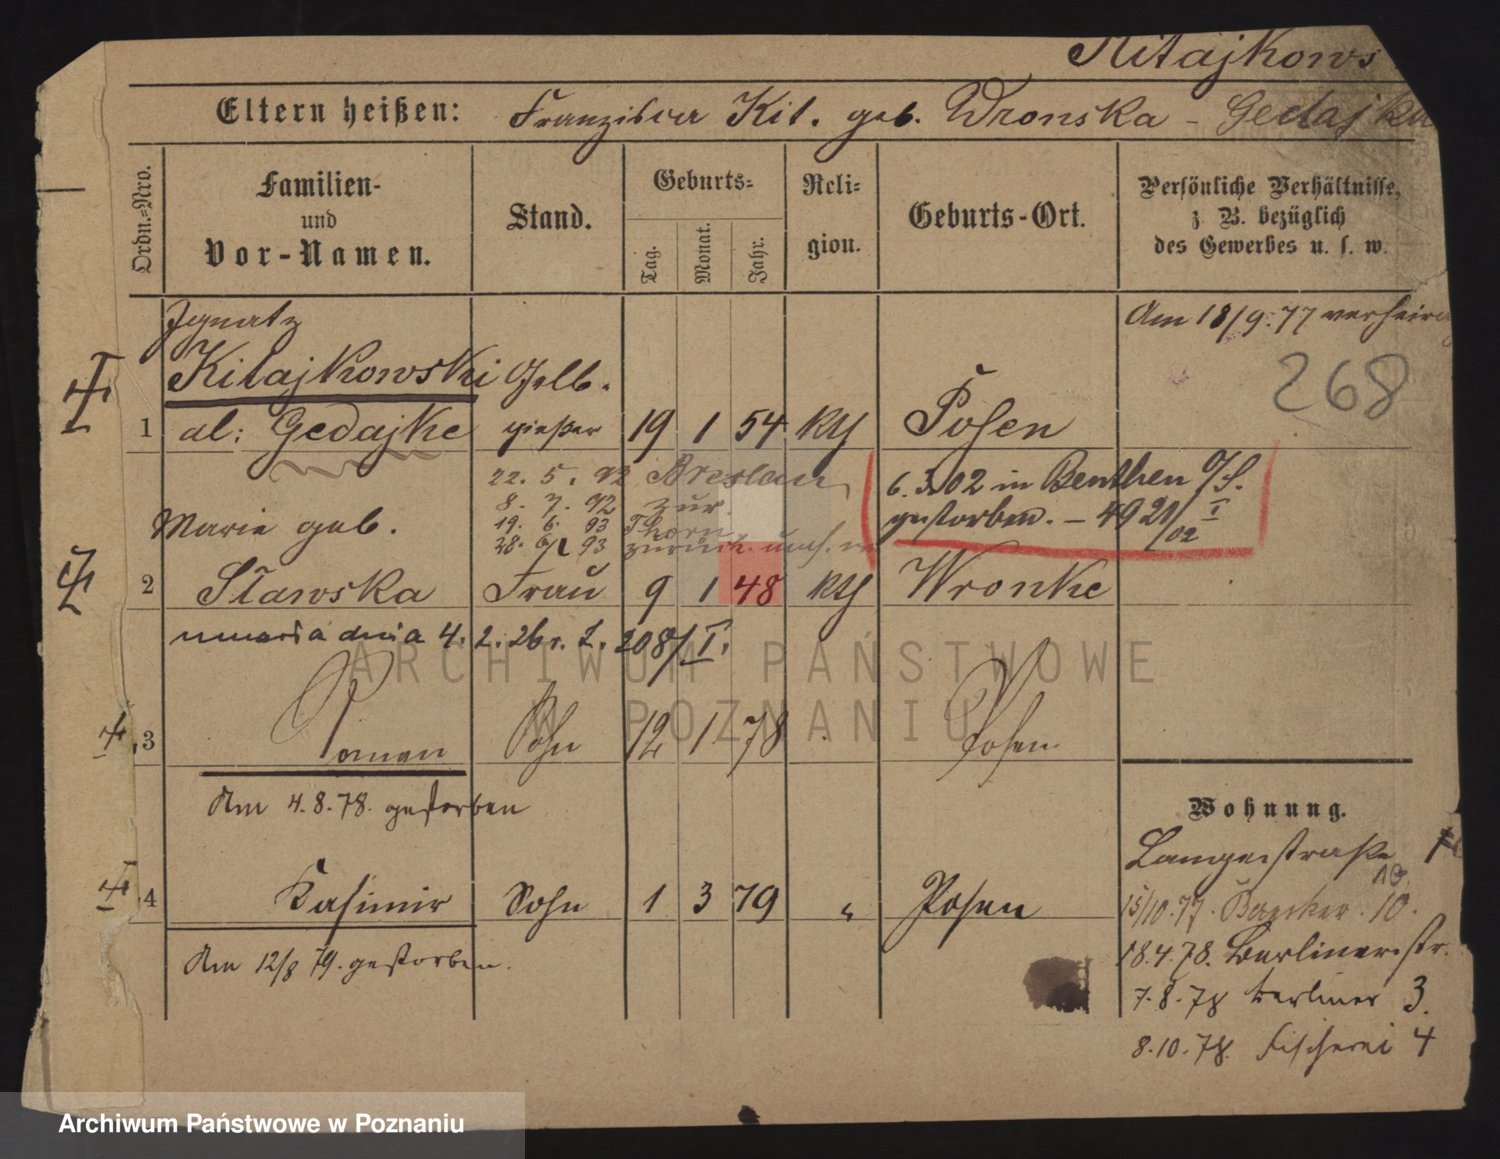 Kitajkows
Eltern heißen: Franziska Kit. geb. Wronska - Gedajka
Ordn.-Nro.
Familien- und Vor-Namen.
Stand.
Geburts-
Tag. Monat. Jahr.
Religion.
Geburts-Ort.
Persönliche Verhältnisse, z. B. bezüglich des Gewerbes u. s. w.
Ignatz
Am 18/9.77 verheira
Kitajkowski Gelb-
268
1 al: Gedajke gießer 19 1 54 kth Posen
22. 5. 92 Breslau
8. 7. 92 zur.
19. 6. 93 Thorn
28. 6. 93 zurück.
6. 3. 02 in Beuthen O/S.
gestorben. - 4921/02 I
Marie geb.
2 Stawska Frau 9 1 48 kth Wronke
umarła dnia 4. 2. 26 r. L. 208/I.
3 Roman Sohn 12 1 78 Posen
Am 4.8.78. gestorben
4 Kasimir Sohn 1 3 79 " Posen
Am 12/8 79. gestorben.
Wohnung.
Langestraße
10.
15/10.77. Baecker. 10.
18.4.78. Berlinerstr.
7.8.78 Berliner 3.
8.10.78. Fischerei 4
ARCHIWUM PAŃSTWOWE
W POZNANIU
Archiwum Państwowe w Poznaniu